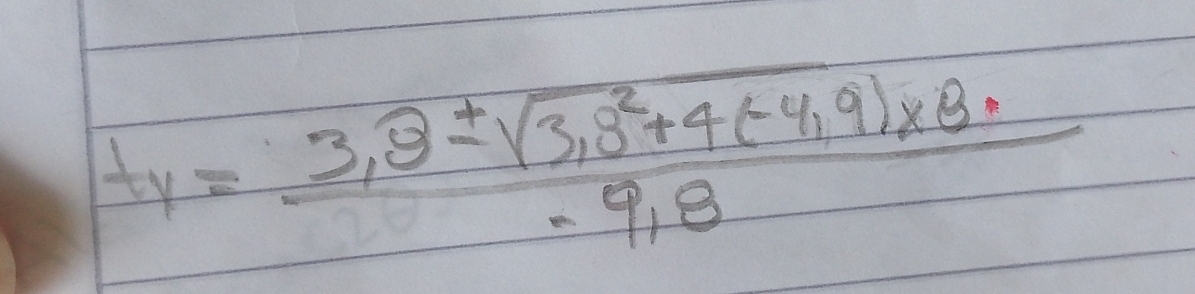 ty = 3,8 ± √3,8² + 4(-4,9) x 8
- 9,8